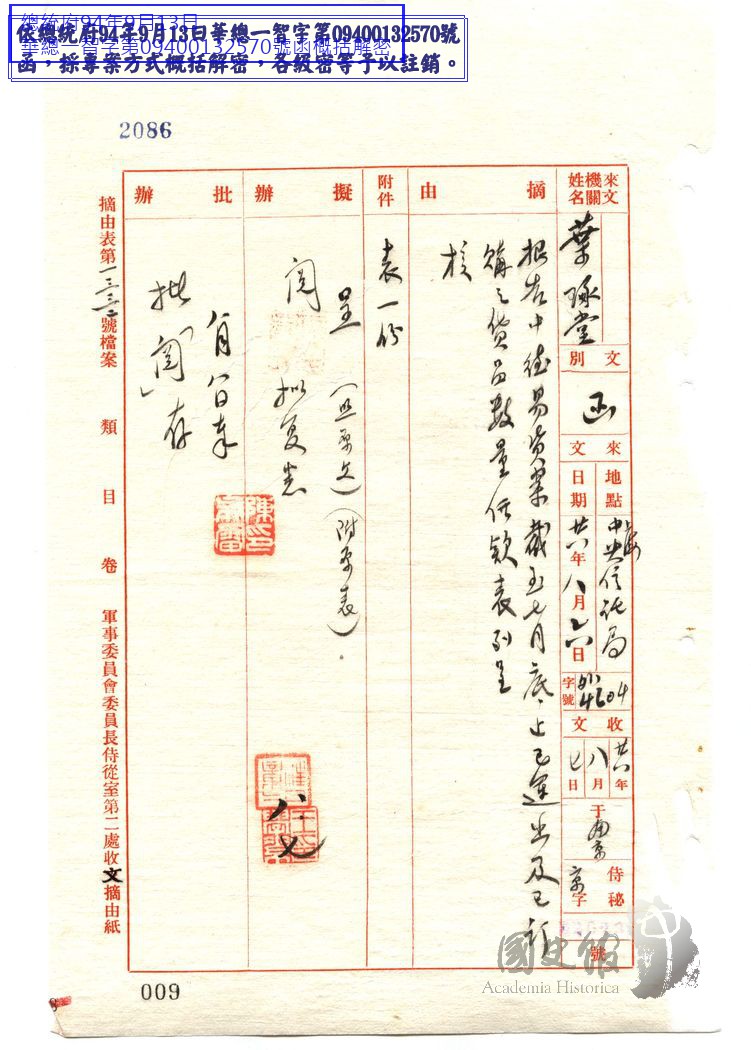 總統府94年9月13日
華總一智字第09400132570號函概括解密
依總統府94年9月13日華總一智字第09400132570號
函，採專案方式概括解密，各級密等予以註銷。
2086
來文機關姓名
葉琢堂
文別
函
來文
地點
上海中央信託局
日期
廿六年八月六日
字號
4604
收文
廿六年八月七日
于南京
侍秘京字
號
摘由
報告中德易貨案截至七月底止已運出及已訂
購之貨品數量價款表列呈
核
附件
表一份
擬辦
呈（照原文）（附原表）．
閱 擬复悉
八．七
批辦
八月八日奉
批「閱」存
摘由表第一三三二號檔案 類 目 卷 軍事委員會委員長侍從室第二處收文摘由紙
009
國史館
Academia Historica